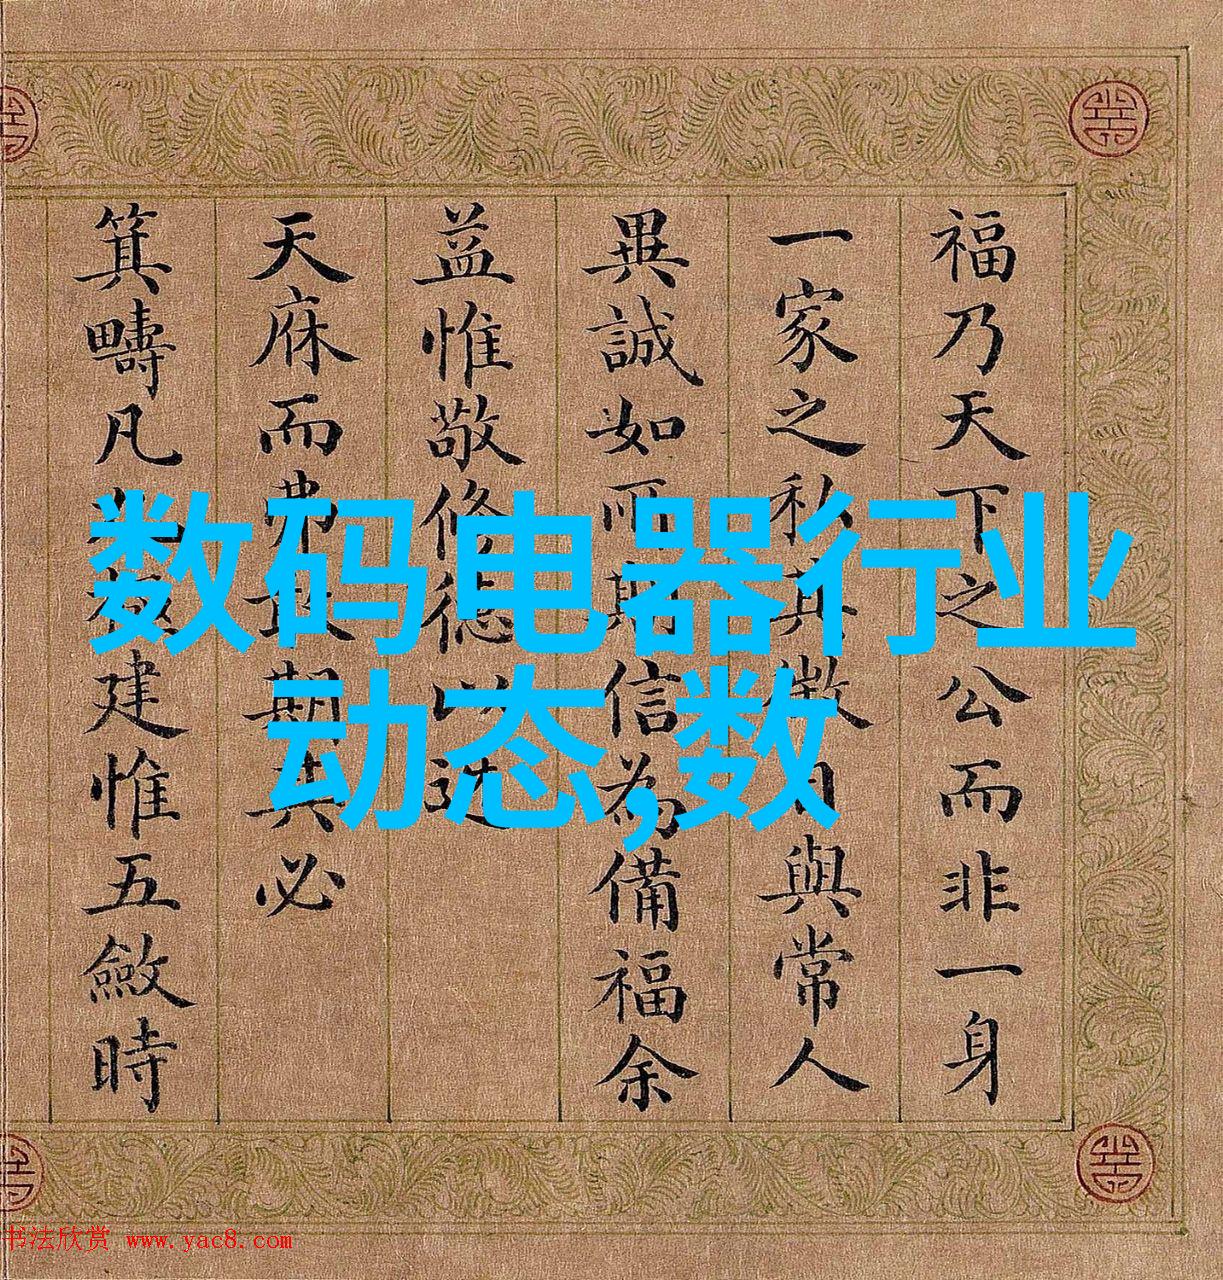 福乃天下之公而非一身
一家之私其徵與常人
異誠如所期信為備福余
益惟敬修德以迓
天庥而弗敢期其必
箕疇凡建惟五斂時
数码电器行业
动态,数
书法欣赏 www.yac8.com